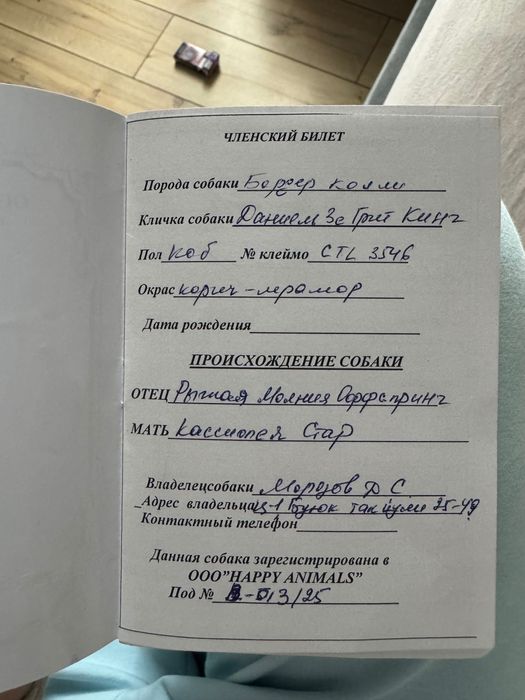 ЧЛЕНСКИЙ БИЛЕТ
Порода собаки Бордер колли
Кличка собаки Даниел Зе Грит Кинг
Пол коб № клеймо CTL 3546
Окрас корич-мрамор
Дата рождения
ПРОИСХОЖДЕНИЕ СОБАКИ
ОТЕЦ Рыжая Молния Оффспринг
МАТЬ Кассиопея Стар
Владелецсобаки Морозов Д С
Адрес владельца Ц-1 25-49
Контактный телефон
Данная собака зарегистрирована в
ООО"HAPPY ANIMALS"
Под № В-013/25